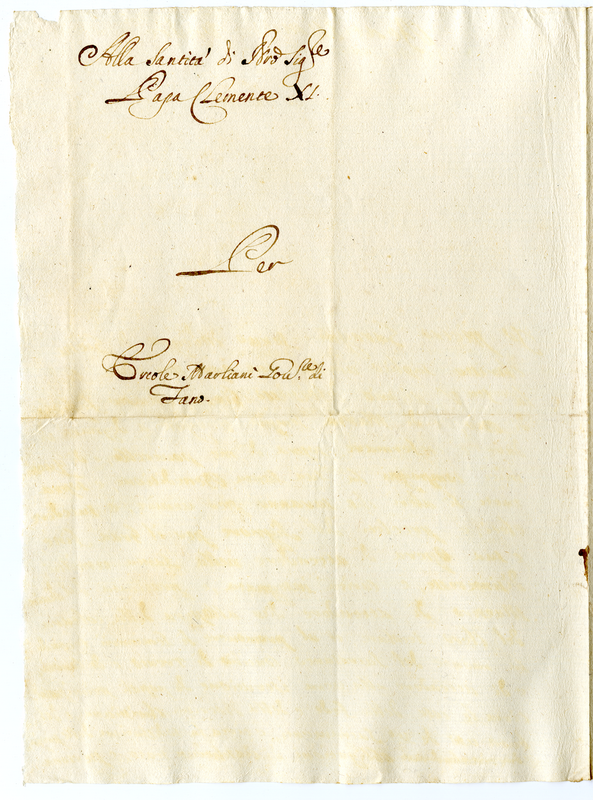 Alla Santità di Nro Sig.re
Papa Clemente XI.
Per
Ercole Marliani Gov.re di
Fano.